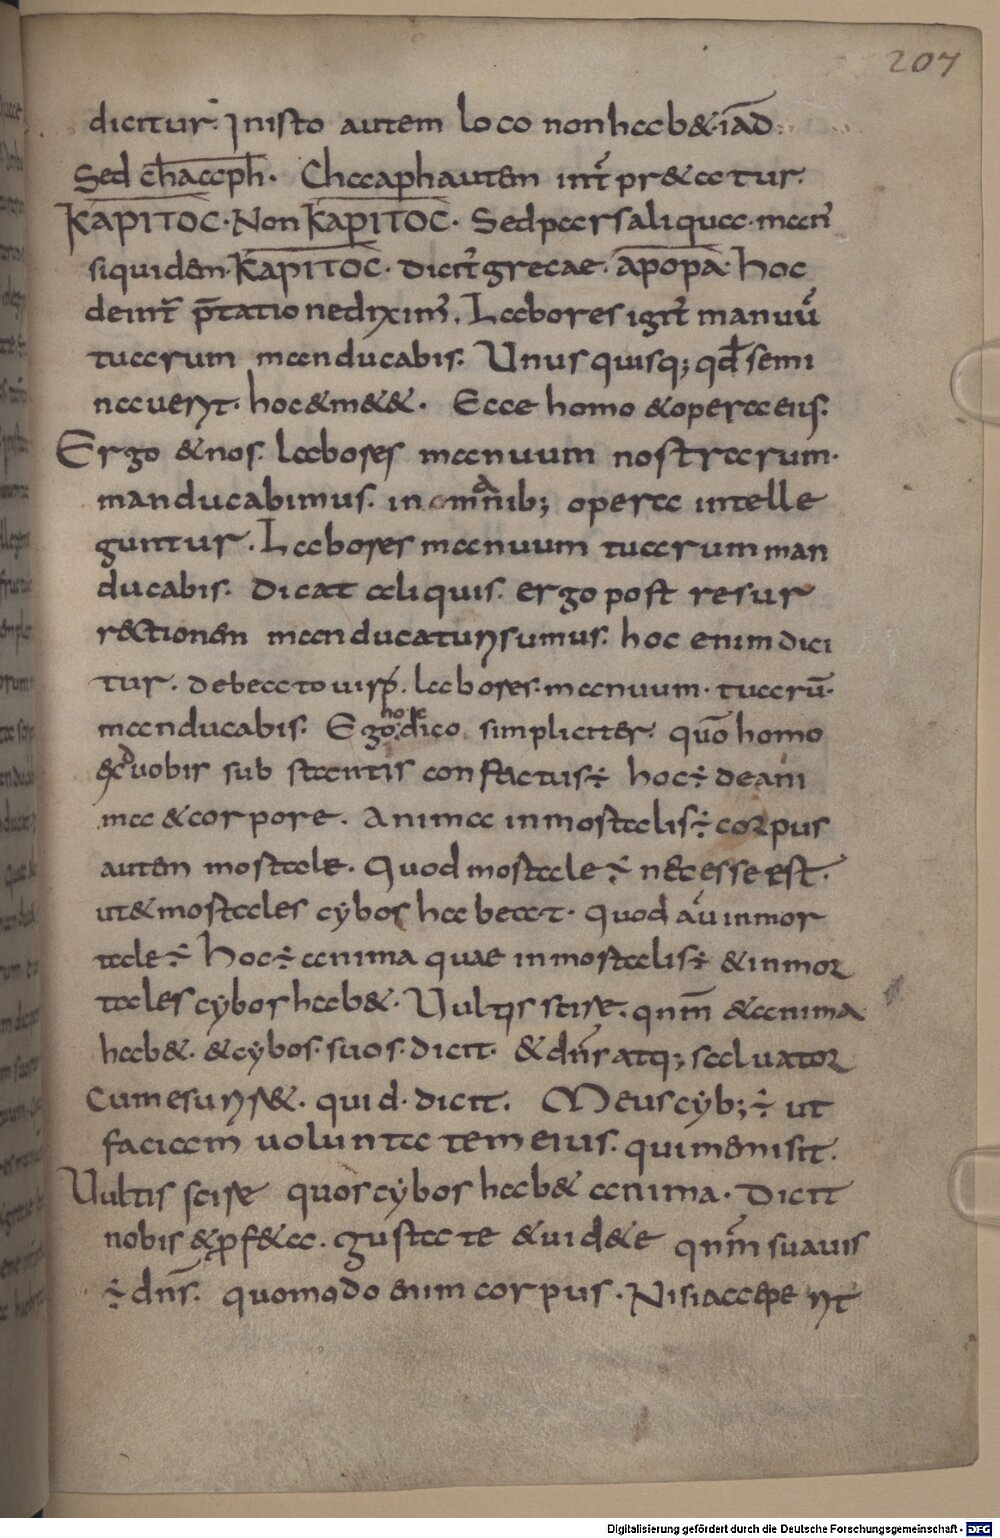 207
dicitur. Inisto autem loco non hab& iād
Sed chaaph. Chaaph autem int̄ pr&atur.
KAPΠTOC. Non KAPΠTOC. Sed pars aliqua. man̄
siquidem. KAPΠTOC. dicit̄ grecae. apopa. hoc
deint̄ p̄tatione diximꝰ. Labores igit̄ manuū
tuarum manducabis. Unus quisq; qd̄ semi
nauerit. hoc & m&&. Ecce homo & opera eius.
Ergo & nos. labores manuum nostrarum.
manducabimus. in omnib; opera intelle
guntur. Labores manuum tuarum man
ducabis. Dicat aliquis. ergo post resur
rectionem manducaturi sumus. hoc enim dici
tur. de beato uiro. labores. manuum. tuarū.
manducabis. Ego hoc dico simpliciter. quō homo
ex duobus sub stantiis con factus ÷ hoc ÷ de ani
ma & corpore. Anima inmortalis ÷ corpus
autem mortale. Quod mortale ÷ necesse est.
ut & mortales cybos habeat. quod aū inmor
tale ÷ hoc ÷ anima quae inmortalis ÷ & inmor
tales cybos hab&. Vultis scire. qnm̄ & anima
hab&. & cybos. suos. dicit. & dn̄s atq; saluator
cum esurir&. quid. dicit. Meus cyb; ÷ ut
faciam uoluntatem eius. qui me misit.
Vultis scire quos cybos hab& anima. Dicit
nobis & prof&a. gustate & uid&e qnm̄ suauis
÷ dn̄s. quomodo enim corpus. Nisi acceperit
Digitalisierung gefördert durch die Deutsche Forschungsgemeinschaft - DFG